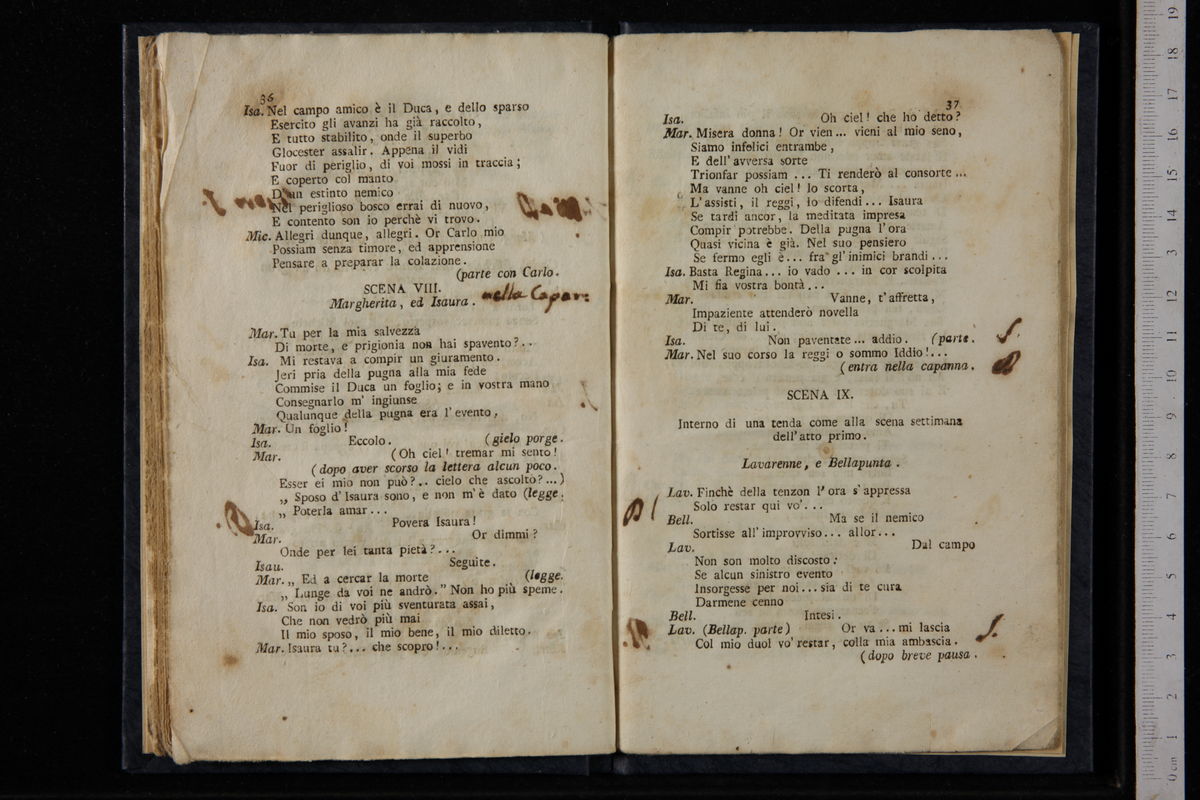 36
Isa. Nel campo amico è il Duca, e dello sparso
Esercito gli avanzi ha già raccolto,
E tutto stabilito, onde il superbo
Glocester assalir. Appena il vidi
Fuor di periglio, di voi mossi in traccia;
E coperto col manto
D'un estinto nemico
Nel periglioso bosco errai di nuovo,
E contento son io perchè vi trovo.
Mic. Allegri dunque, allegri. Or Carlo mio
Possiam senza timore, ed apprensione
Pensare a preparar la colazione.
(parte con Carlo.
SCENA VIII.
Margherita, ed Isaura. nella Capan:
Mar. Tu per la mia salvezza
Di morte, e prigionia non hai spavento?..
Isa. Mi restava a compir un giuramento.
Jeri pria della pugna alla mia fede
Commise il Duca un foglio; e in vostra mano
Consegnarlo m' ingiunse
Qualunque della pugna era l'evento.
Mar. Un foglio!
Isa. Eccolo. (gielo porge.
Mar. (Oh ciel! tremar mi sento!
(dopo aver scorso la lettera alcun poco.
Esser ei mio non può?.. cielo che ascolto?...)
„ Sposo d'Isaura sono, e non m'è dato (legge.
„ Poterla amar...
Isa. Povera Isaura!
Mar. Or dimmi?
Onde per lei tanta pietà?...
Isau. Seguite.
Mar. „ Ed a cercar la morte (legge.
„ Lunge da voi ne andrò." Non ho più speme.
Isa. Son io di voi più sventurata assai,
Che non vedrò più mai
Il mio sposo, il mio bene, il mio diletto.
Mar. Isaura tu?... che scopro!...
37
Isa. Oh ciel! che ho detto?
Mar. Misera donna! Or vien... vieni al mio seno,
Siamo infelici entrambe,
E dell'avversa sorte
Trionfar possiam ... Ti renderò al consorte...
Ma vanne oh ciel! lo scorta,
L'assisti, il reggi, lo difendi... Isaura
Se tardi ancor, la meditata impresa
Compir potrebbe. Della pugna l'ora
Quasi vicina è già. Nel suo pensiero
Se fermo egli è... fra gl'inimici brandi...
Isa. Basta Regina... io vado ... in cor scolpita
Mi fia vostra bontà...
Mar. Vanne, t'affretta,
Impaziente attenderò novella
Di te, di lui.
Isa. Non paventate... addio. (parte.
Mar. Nel suo corso la reggi o sommo Iddio!...
(entra nella capanna.
SCENA IX.
Interno di una tenda come alla scena settimana
dell'atto primo.
Lavarenne, e Bellapunta.
Lav. Finchè della tenzon l'ora s'appressa
Solo restar qui vo'...
Bell. Ma se il nemico
Sortisse all'improvviso... allor...
Lav. Dal campo
Non son molto discosto:
Se alcun sinistro evento
Insorgesse per noi... sia di te cura
Darmene cenno
Bell. Intesi.
Lav. (Bellap. parte) Or va ... mi lascia
Col mio duol vo' restar, colla mia ambascia.
(dopo breve pausa.